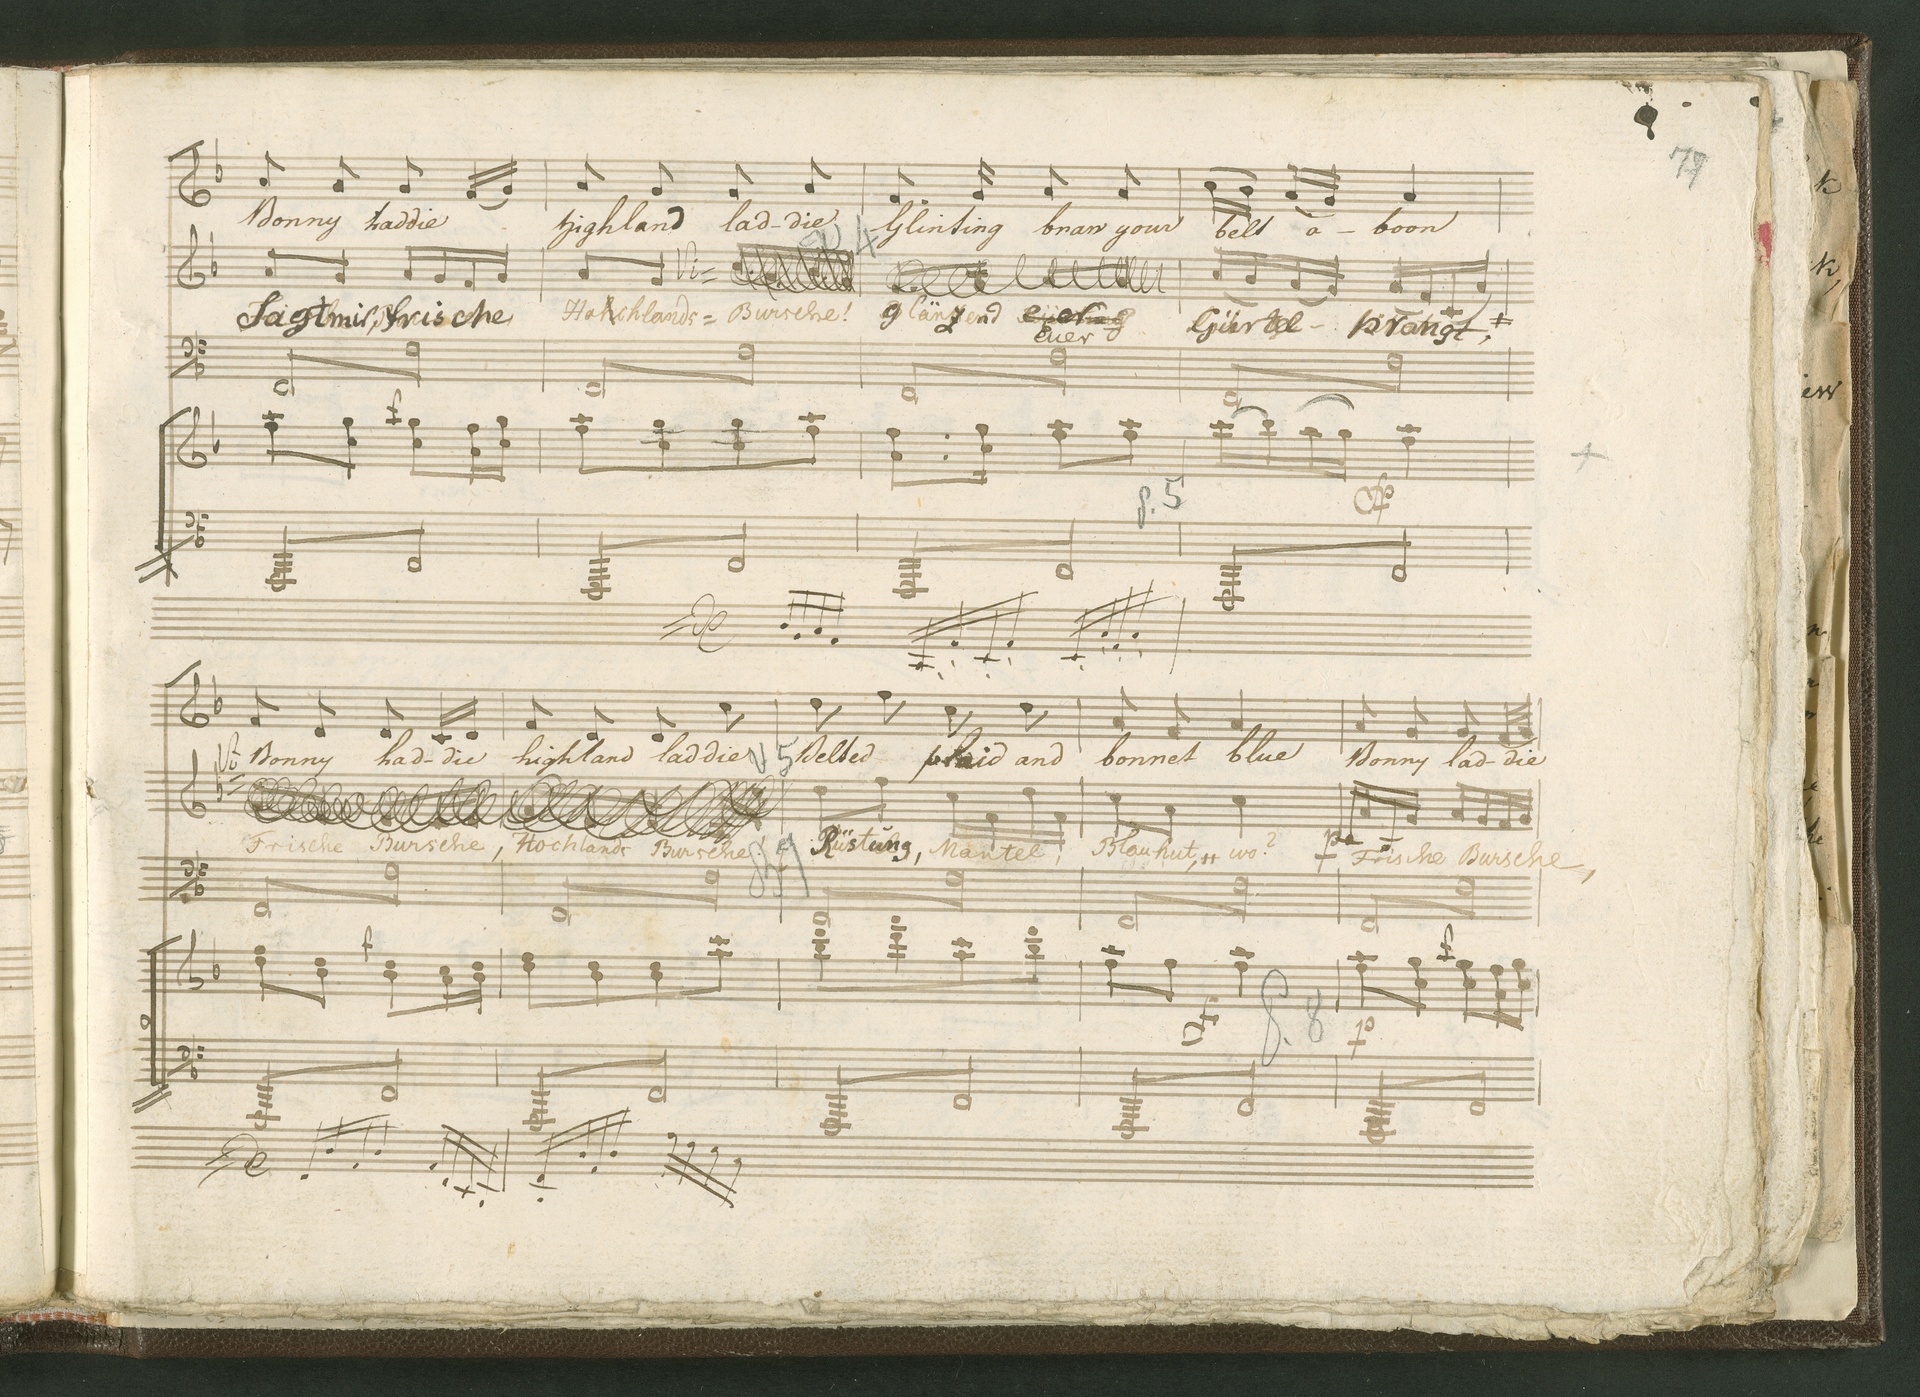 77
Bonny laddie highland lad-die Glinting braw your belt a-boon
Sagt mir, frische Hochlands= Bursche! glänzend euer Gürtel - prangt,
p. 5
Bonny lad-die highland laddie Belted plaid and bonnet blue Bonny lad-die
Frische Bursche, Hochlands Bursche Rüstung, Mantel, Blauhut, wo? Frische Bursche,
p. 8